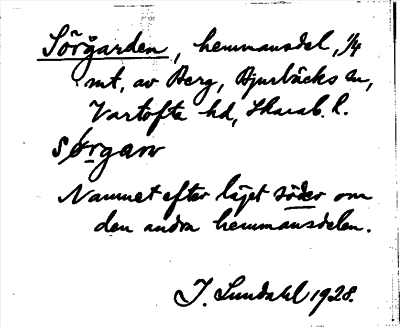 Sörgården, hemmansdel, 1/4
mt, av Berg, Bjurbäcks sn,
Vartofta hd, Skarab. l.
sørgaɴ
Namnet efter läget söder om
den andra hemmansdelen.
J. Lundahl 1928.